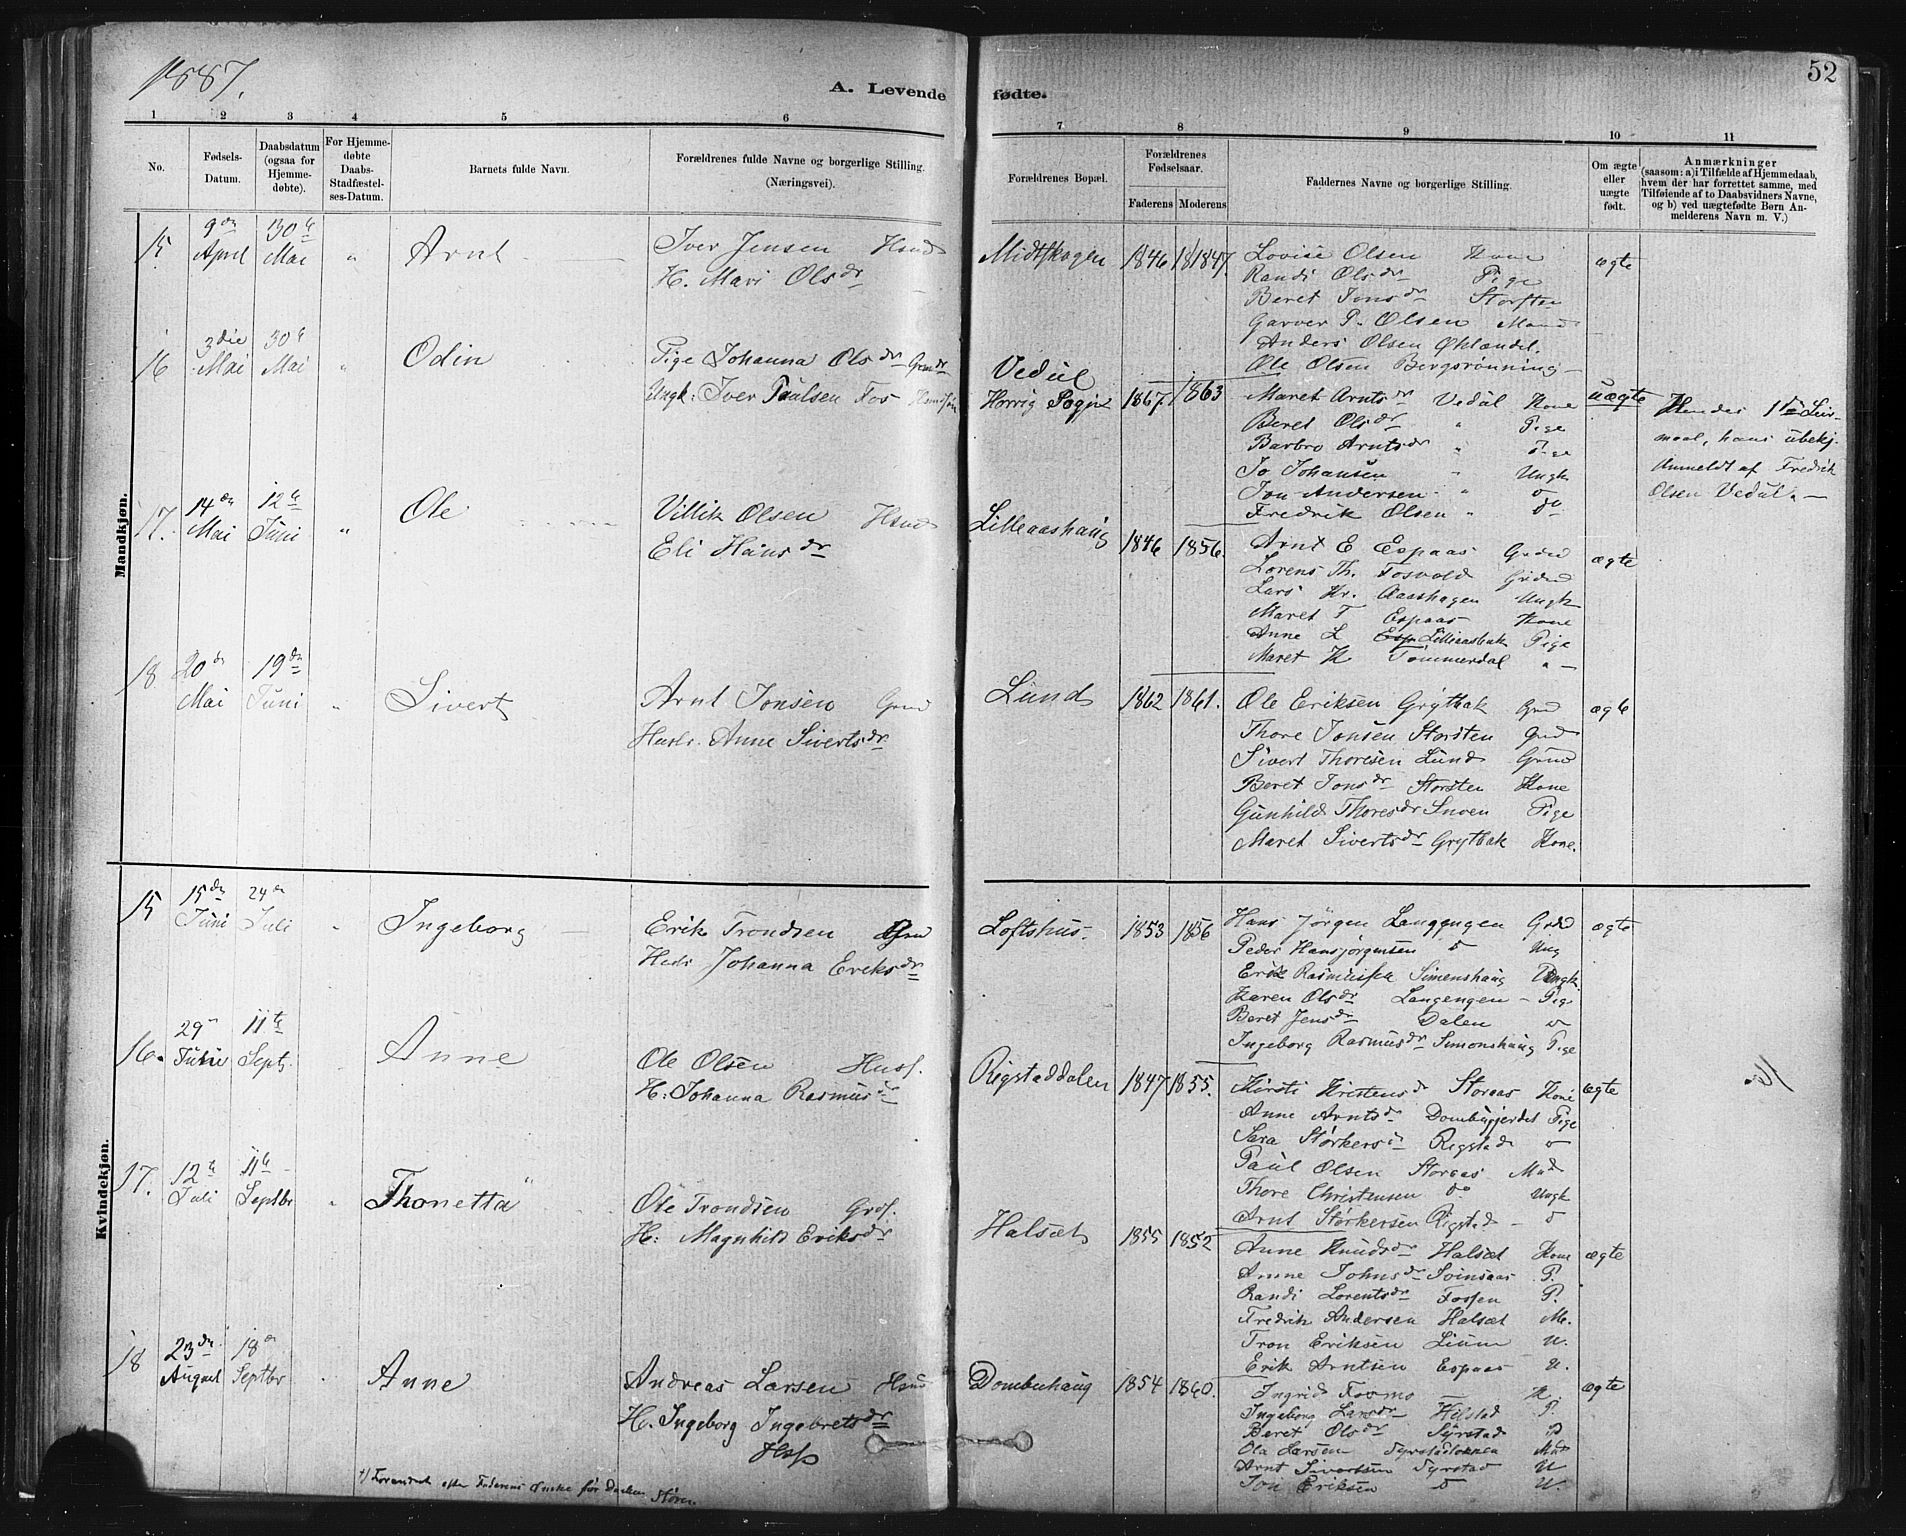 1887.
52
A. Levende fødte.
1 2 3 4 5 6 7 8 9 10 11
No.
Fødsels-Datum.
Daabsdatum (ogsaa for Hjemmedøbte).
For Hjemmedøbte Daabs-Stadfæstelses-Datum.
Barnets fulde Navn.
Forældrenes fulde Navne og borgerlige Stilling. (Næringsvei).
Forældrenes Bopæl.
Forældrenes Fødselsaar.
Faderens Moderens
Faddernes Navne og borgerlige Stilling.
Om ægte eller uægte født.
Anmærkninger
(saasom: a) i Tilfælde af Hjemmedaab, hvem der har forrettet samme, med Tilføiende af to Daabsvidners Navne, og b) ved uægtefødte Børn Anmelderens Navn m. V.)
Mandkjøn.
15 9de April 30te Mai " Arnt
Iver Jensen
H. Mari Olsdr
Midtskogen 1846 1847. ægte
Lovise Olsen Kone
Randi Olsdr Pige
Beret Jonsdr Storsten
Garver P. Olsen Mand
Anders Olsen
Ole Olsen Bergsrønning
16 3die Mai 30te Mai " Odin
Pige Johanna Olsdr
Ungk: Iver Paulsen Fos
Vedul
Horrig Sogn 1867. 1863 uægte
Maret Arntsdr Vedul Kone
Beret Olsdr " Pige
Barbro Arntsdr " Pige
Jo Johansen " Ungk
Jon Andersen " do
Fredrik Olsen " do
Hendes 1ste Leiermaal, hans ubekj.
Anmeldt af Fredrik
Olsen Vedul. —
17. 14de Mai 12te Juni " Ole
Villik Olsen
Eli Hansdr
Lilleaashaug 1846 1856. ægte
Arnt E Espaas
Lorens Th. Fosvold
Lars Kr. Aashagen Ungk
Maret T Espaas Kone
Anne L Lilleaasbak Pige
Maret K Tømmerdal " —
18 20de Mai 19de Juni " Sivert
Arnt Jonsen
Anne Sivertsdr
Lund 1862 1861. ægte
Ole Eriksen Grytbak
Thore Jonsen Storsten
Sivert Thoresen Lund
Beret Jonsdr Storsten Kone
Gunhild Thoresdr Snoen Pige
Maret Sivertsdr Grytbak Kone.
Kvindekjøn.
15 15de Juni 24de Juli " Ingeborg
Erik Trondsen
Johanna Eriksdr
Loftshus. 1853 1856 ægte
Hans Jørgen Langengen
Peder Hansjørgensen do Ung
Erik Rasmussen Simenshaug Ungk.
Karen Olsdr Langengen Pige
Beret Jensdr Dalen do
Ingeborg Rasmusdr Simonshaug Pige
16. 29de 11te Septr. " Anne
Ole Olsen Husf.
H: Johanna Rasmusdr
Rigstaddalen 1847 1855. ægte
Kirsti Kristensdr Storaas Kone
Anne Arntsdr Pige
Sara Størkersdr Rigstad do
Paul Olsen Storaas
Thore Christensen do Ungk
Arnt Størkersen Rigstad do
17. 12te Juli 11te Septbr " Thonetta
Ole Trondsen
H: Magnhild Eriksdr
Halsæt 1855 1852 ægte
Anne Knudsdr Halsæt Kone
Anne Johnsdr Svinsaas P.
Randi Lorentsdr Fossen P.
Fredrik Andersen Halsæt M.
Tron Eriksen Lium U.
Erik Arntsen Espaas U.
18 23de August 18de Septbr " Anne
Andreas Larsen
H. Ingeborg Ingebretsdr
Dombuhaug 1854 1860. ægte
Ingrid Formo K.
Ingeborg Larsdr Helstad P
Beret Olsdr Syrstad P
Ola Larsen
Arnt Sivertsen Syrstad U
Jon Eriksen do U.
Forandret efter Faderens Ønske før Daaben Støren.